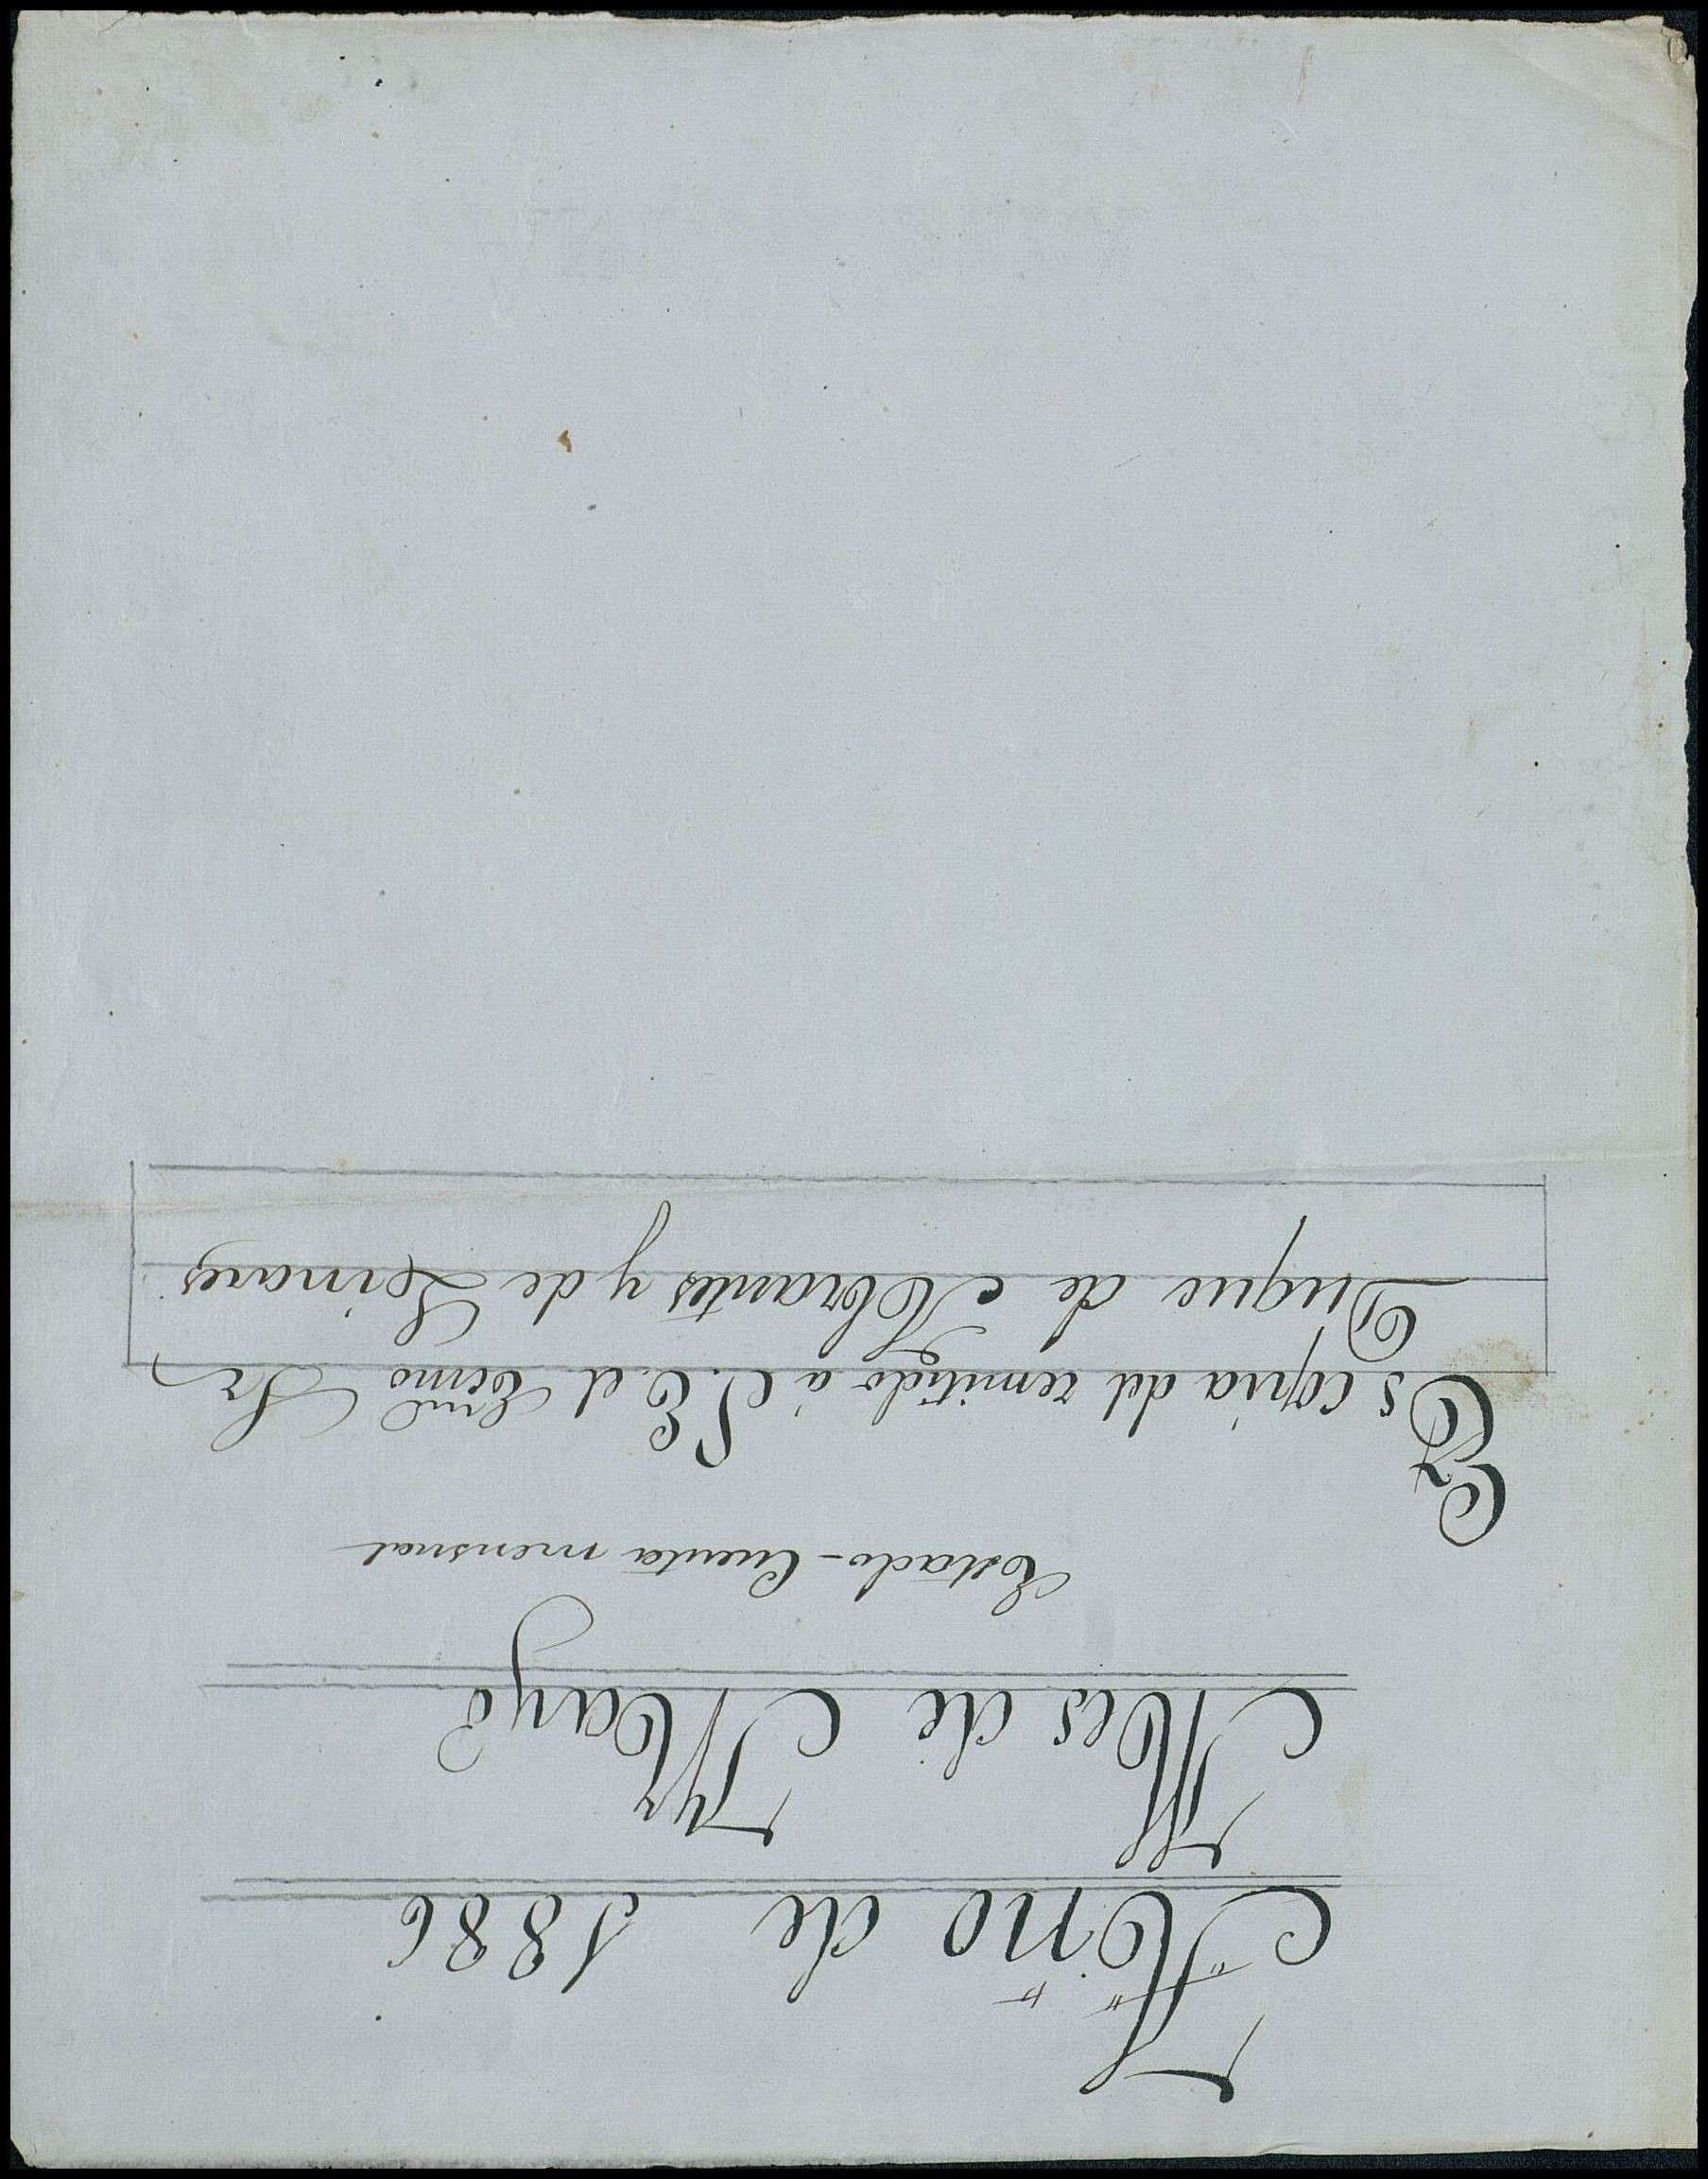 Año de 1886
Mes de Mayo
Estado-Cuenta mensual
Es copia del remitido á S.E. el Ecmo Sr
Duque de Abrantes y de Linares